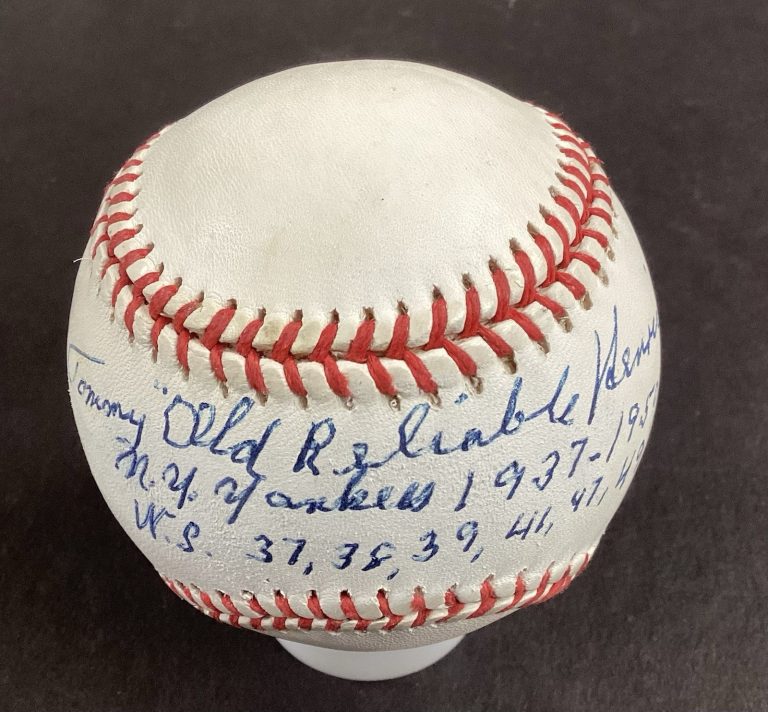 Tommy "Old Reliable Henr
N.Y. Yankees 1937-195
W.S. 37, 38, 39, 41, 47, 49